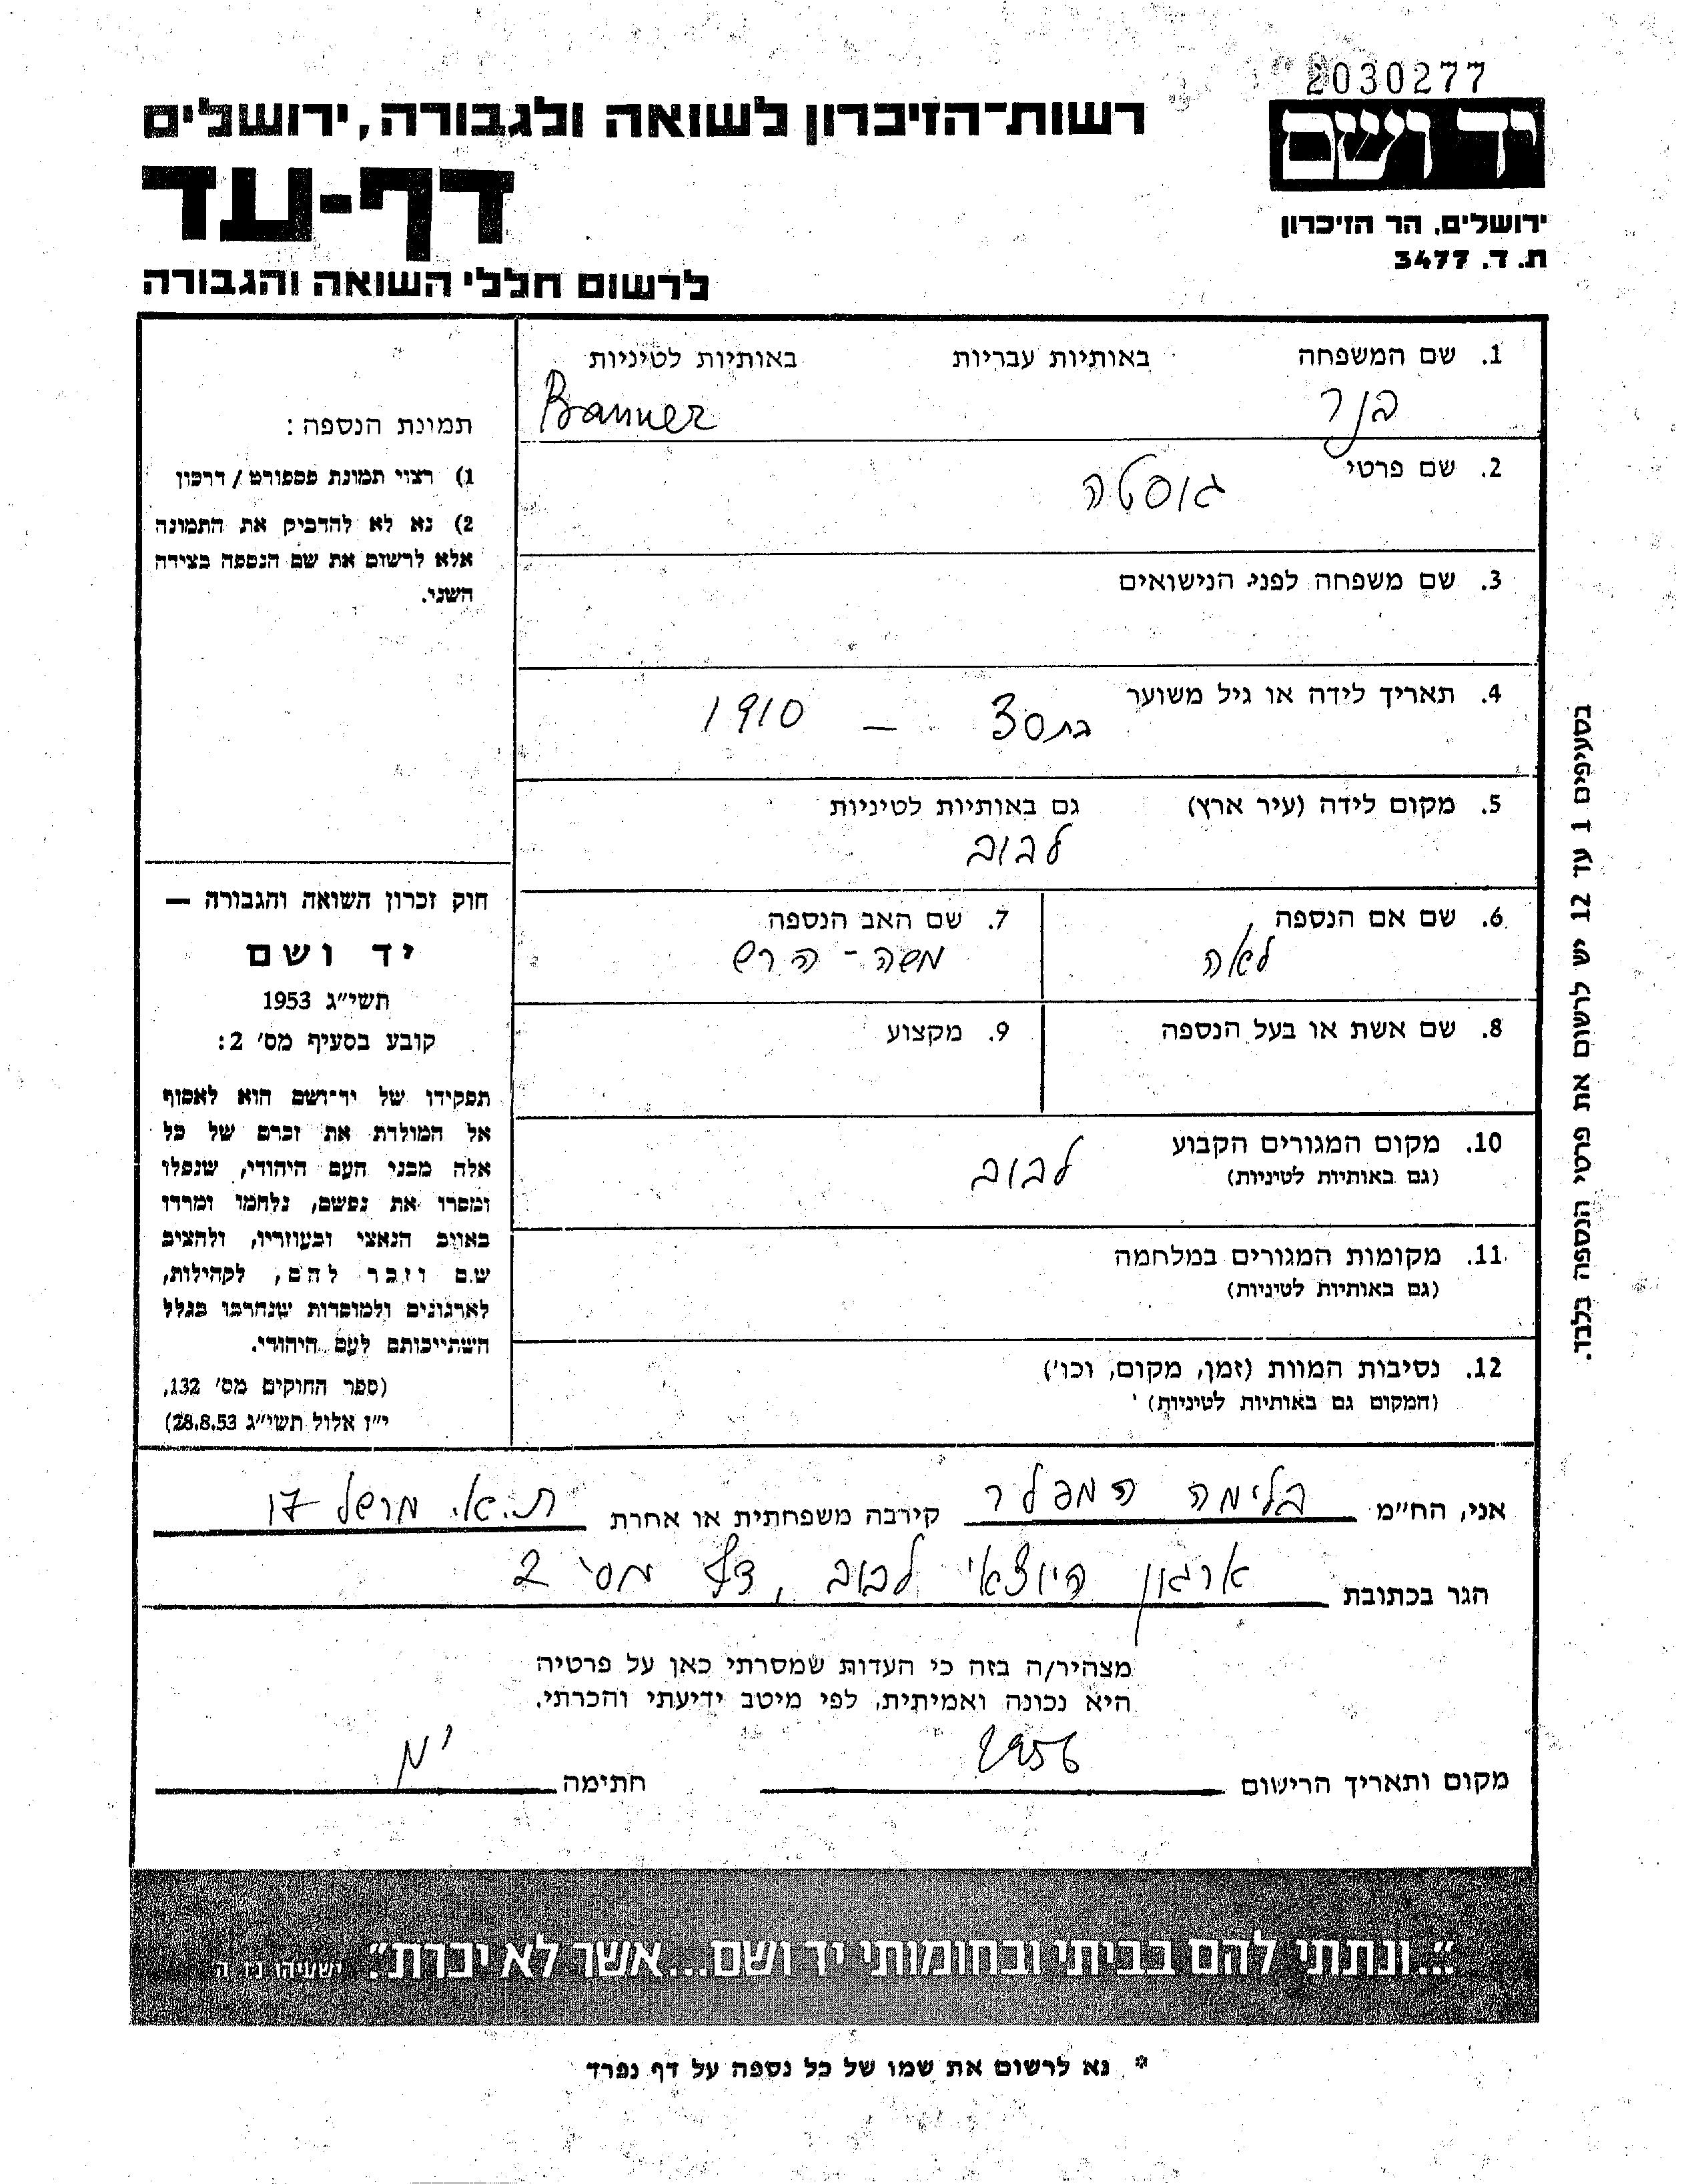 2030277
יד ושם
רשות־הזיכרון לשואה ולגבורה, ירושלים
דף-עד
ירושלים, הר הזיכרון
ת. ד. 3477
לרשום חללי השואה והגבורה
1. שם המשפחה באותיות עבריות באותיות לטיניות
בנר Banner
2. שם פרטי
גוסטה
3. שם משפחה לפני הנישואים
4. תאריך לידה או גיל משוער
בת 30 – 1910
5. מקום לידה (עיר ארץ) גם באותיות לטיניות
לבוב
6. שם אם הנספה 7. שם האב הנספה
לאה משה - הרש
8. שם אשת או בעל הנספה 9. מקצוע
10. מקום המגורים הקבוע
(גם באותיות לטיניות)
לבוב
11. מקומות המגורים במלחמה
(גם באותיות לטיניות)
12. נסיבות המוות (זמן, מקום, וכו')
(המקום גם באותיות לטיניות)
תמונת הנספה:
1) רצוי תמונת פספורט / דרכון
2) נא לא להדביק את התמונה
אלא לרשום את שם הנספה בצידה
השני.
חוק זכרון השואה והגבורה —
יד ושם
תשי"ג 1953
קובע בסעיף מס' 2:
תפקידו של יד־ושם הוא לאסוף
אל המולדת את זכרם של כל
אלה מבני העם היהודי, שנפלו
ומסרו את נפשם, נלחמו ומרדו
באויב הנאצי ובעוזריו, ולהציב
שם וזכר להם, לקהילות,
לארגונים ולמוסדות שנחרבו בגלל
השתייכותם לעם היהודי.
(ספר החוקים מס' 132,
י"ז אלול תשי"ג 28.8.53)
בסעיפים 1 עד 12 יש לרשום את פרטי הנספה בלבד.
אני, הח"מ בלימה המפלר קירבה משפחתית או אחרת ת.א. מרשל 17
הגר בכתובת ארגון היוצאי לבוב, דף מס' 2
מצהיר/ה בזה כי העדות שמסרתי כאן על פרטיה
היא נכונה ואמיתית, לפי מיטב ידיעתי והכרתי.
מקום ותאריך הרישום 1956 חתימה
"...ונתתי להם בביתי ובחומותי יד ושם...אשר לא יכרת". ישעיהו נו ה
* נא לרשום את שמו של כל נספה על דף נפרד